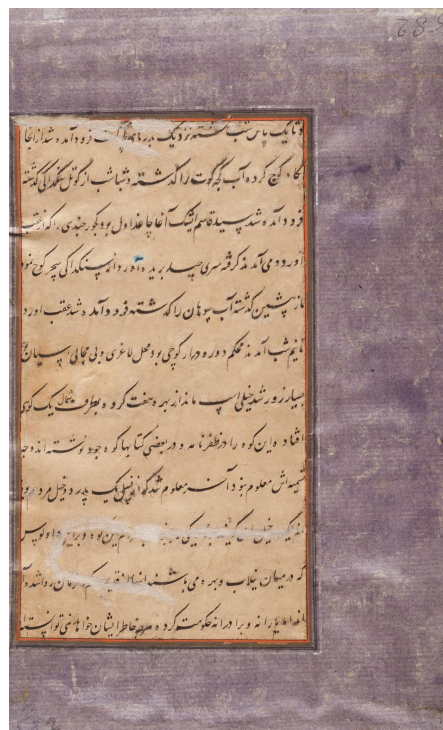 و تا یک پاس شب گذشته نزدیک فرود آمده شد از انجا
گاه کوچ کرده آب کچه کوت را گذشته و شباشب از کوتل سنگداکی گذشته
فرود آمده شد سید قاسم ایشک آغا چاغداول بود کجور چندی را که از عقب
اوردو می آمدند گرفته سری چند بریده آورد از سنگداکی سحر کوچ نمو
نماز پیشین گذشته آب سوهان را گذشته فرود آمده شد عقب اورد
تا نیم شب آمدند محکم دور و دراز کوچی بود محل لاغری و بی مجالی اسپان
بسیار زور شد خیلی اسپ ماند از بهره هفت کروه بطرف شمال یک کوهی
افتاده این کوه را در ظفرنامه و در بعضی کتابها کوه جود نوشته اند وجه
تسمیه اش معلوم نبود آخر معلوم شد که یک پدر دو خیل مردم بود
یک خیل
که در میان نیلاب و بهره می باشند حکم فرمان روا شده
اند اما یارانه و برادرانه حکومت کرده هرچه خاطر ایشان خواهد نمی توانستند